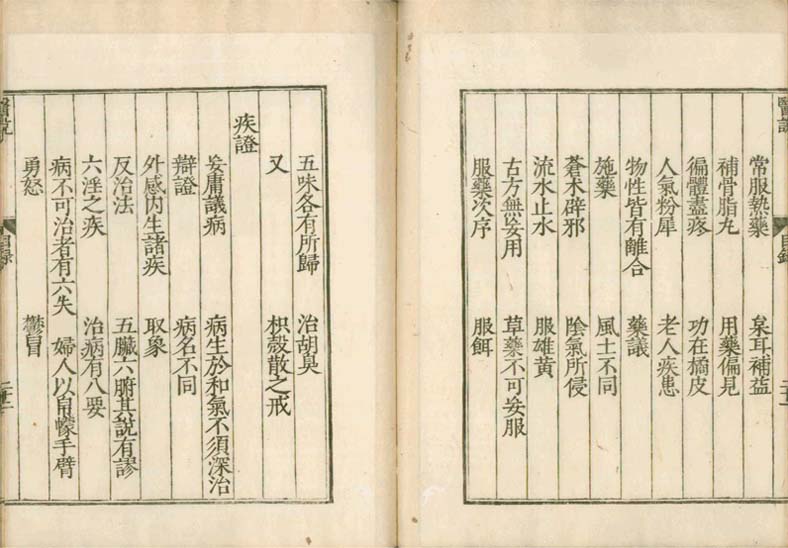 醫說
目錄
常服熱藥　枲耳補益
補骨脂丸　用藥偏見
徧體盡疼　功在橘皮
人氣粉犀　老人疾患
物性皆有離合　藥議
施藥　風土不同
蒼术辟邪　陰氣所侵
流水止水　服雄黃
古方無妄用　草藥不可妄服
服藥次序　服餌
五味各有所歸　治胡臭
又　枳殼散之戒
疾證
妄庸議病　病生於和氣不須深治
辯證　病名不同
外感內生諸疾　取象
反治法　五臟六腑其說有謬
六淫之疾　治病有八要
病不可治者有六失　婦人以帛幪手臂
勇怒　鬱冒
醫說
目錄